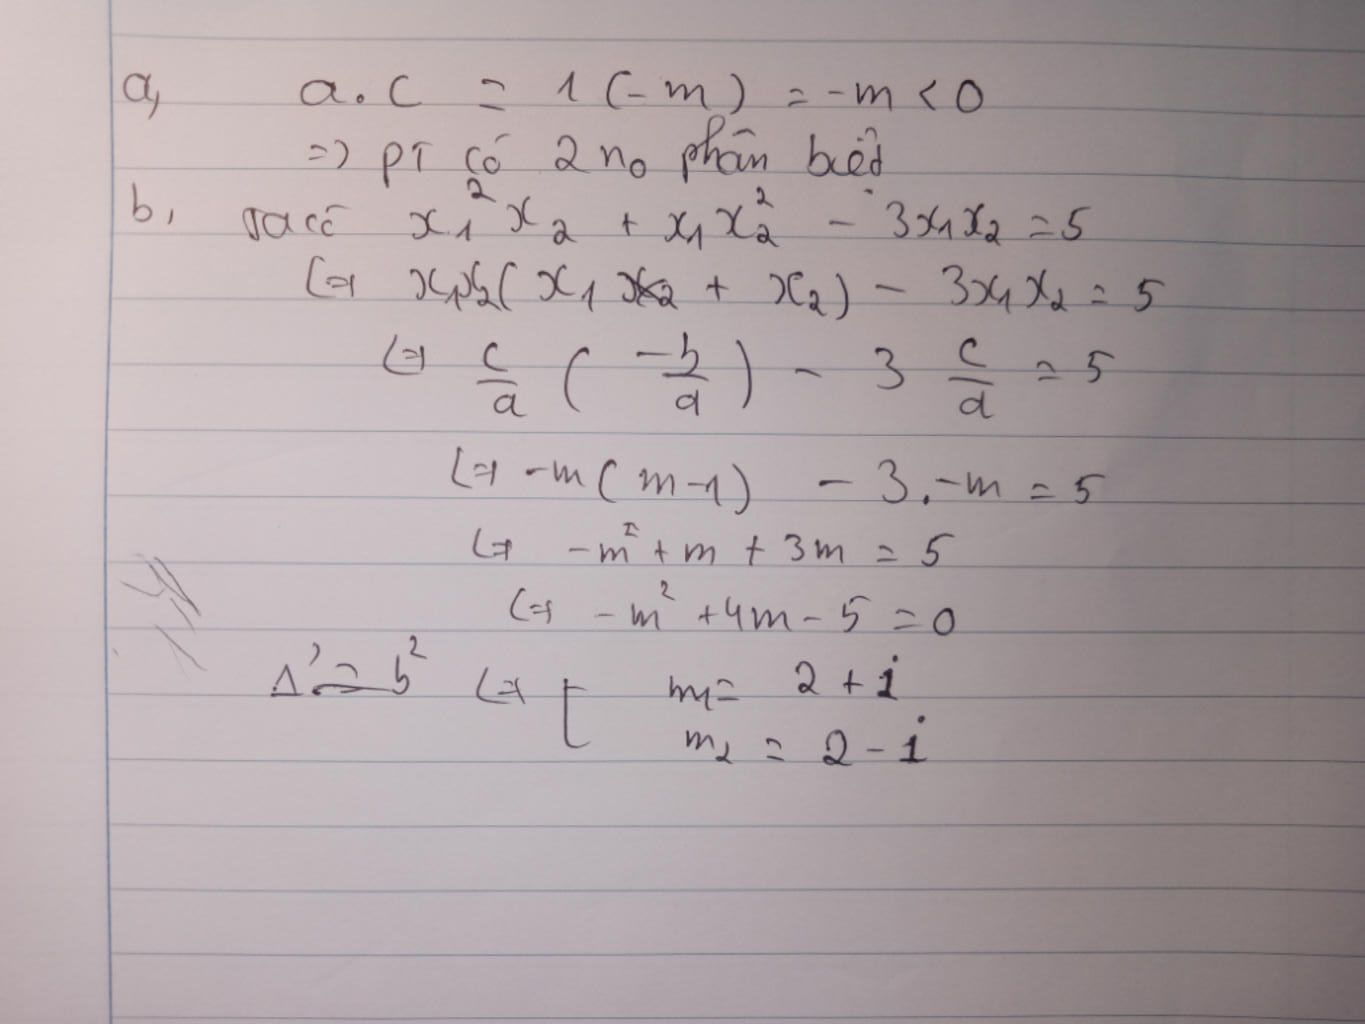 a, a.c = 1(-m) = -m < 0
=> pT có 2 no phân biệt
b, Ta có x₁²x₂ + x₁x₂² - 3x₁x₂ = 5
<=> x₁x₂(x₁ + x₂) - 3x₁x₂ = 5
<=> c/a (-b/a) - 3 c/a = 5
<=> -m(m-1) - 3.-m = 5
<=> -m² + m + 3m = 5
<=> -m² + 4m - 5 = 0
Δ' = b² <=> [ m₁ = 2 + i
m₂ = 2 - i